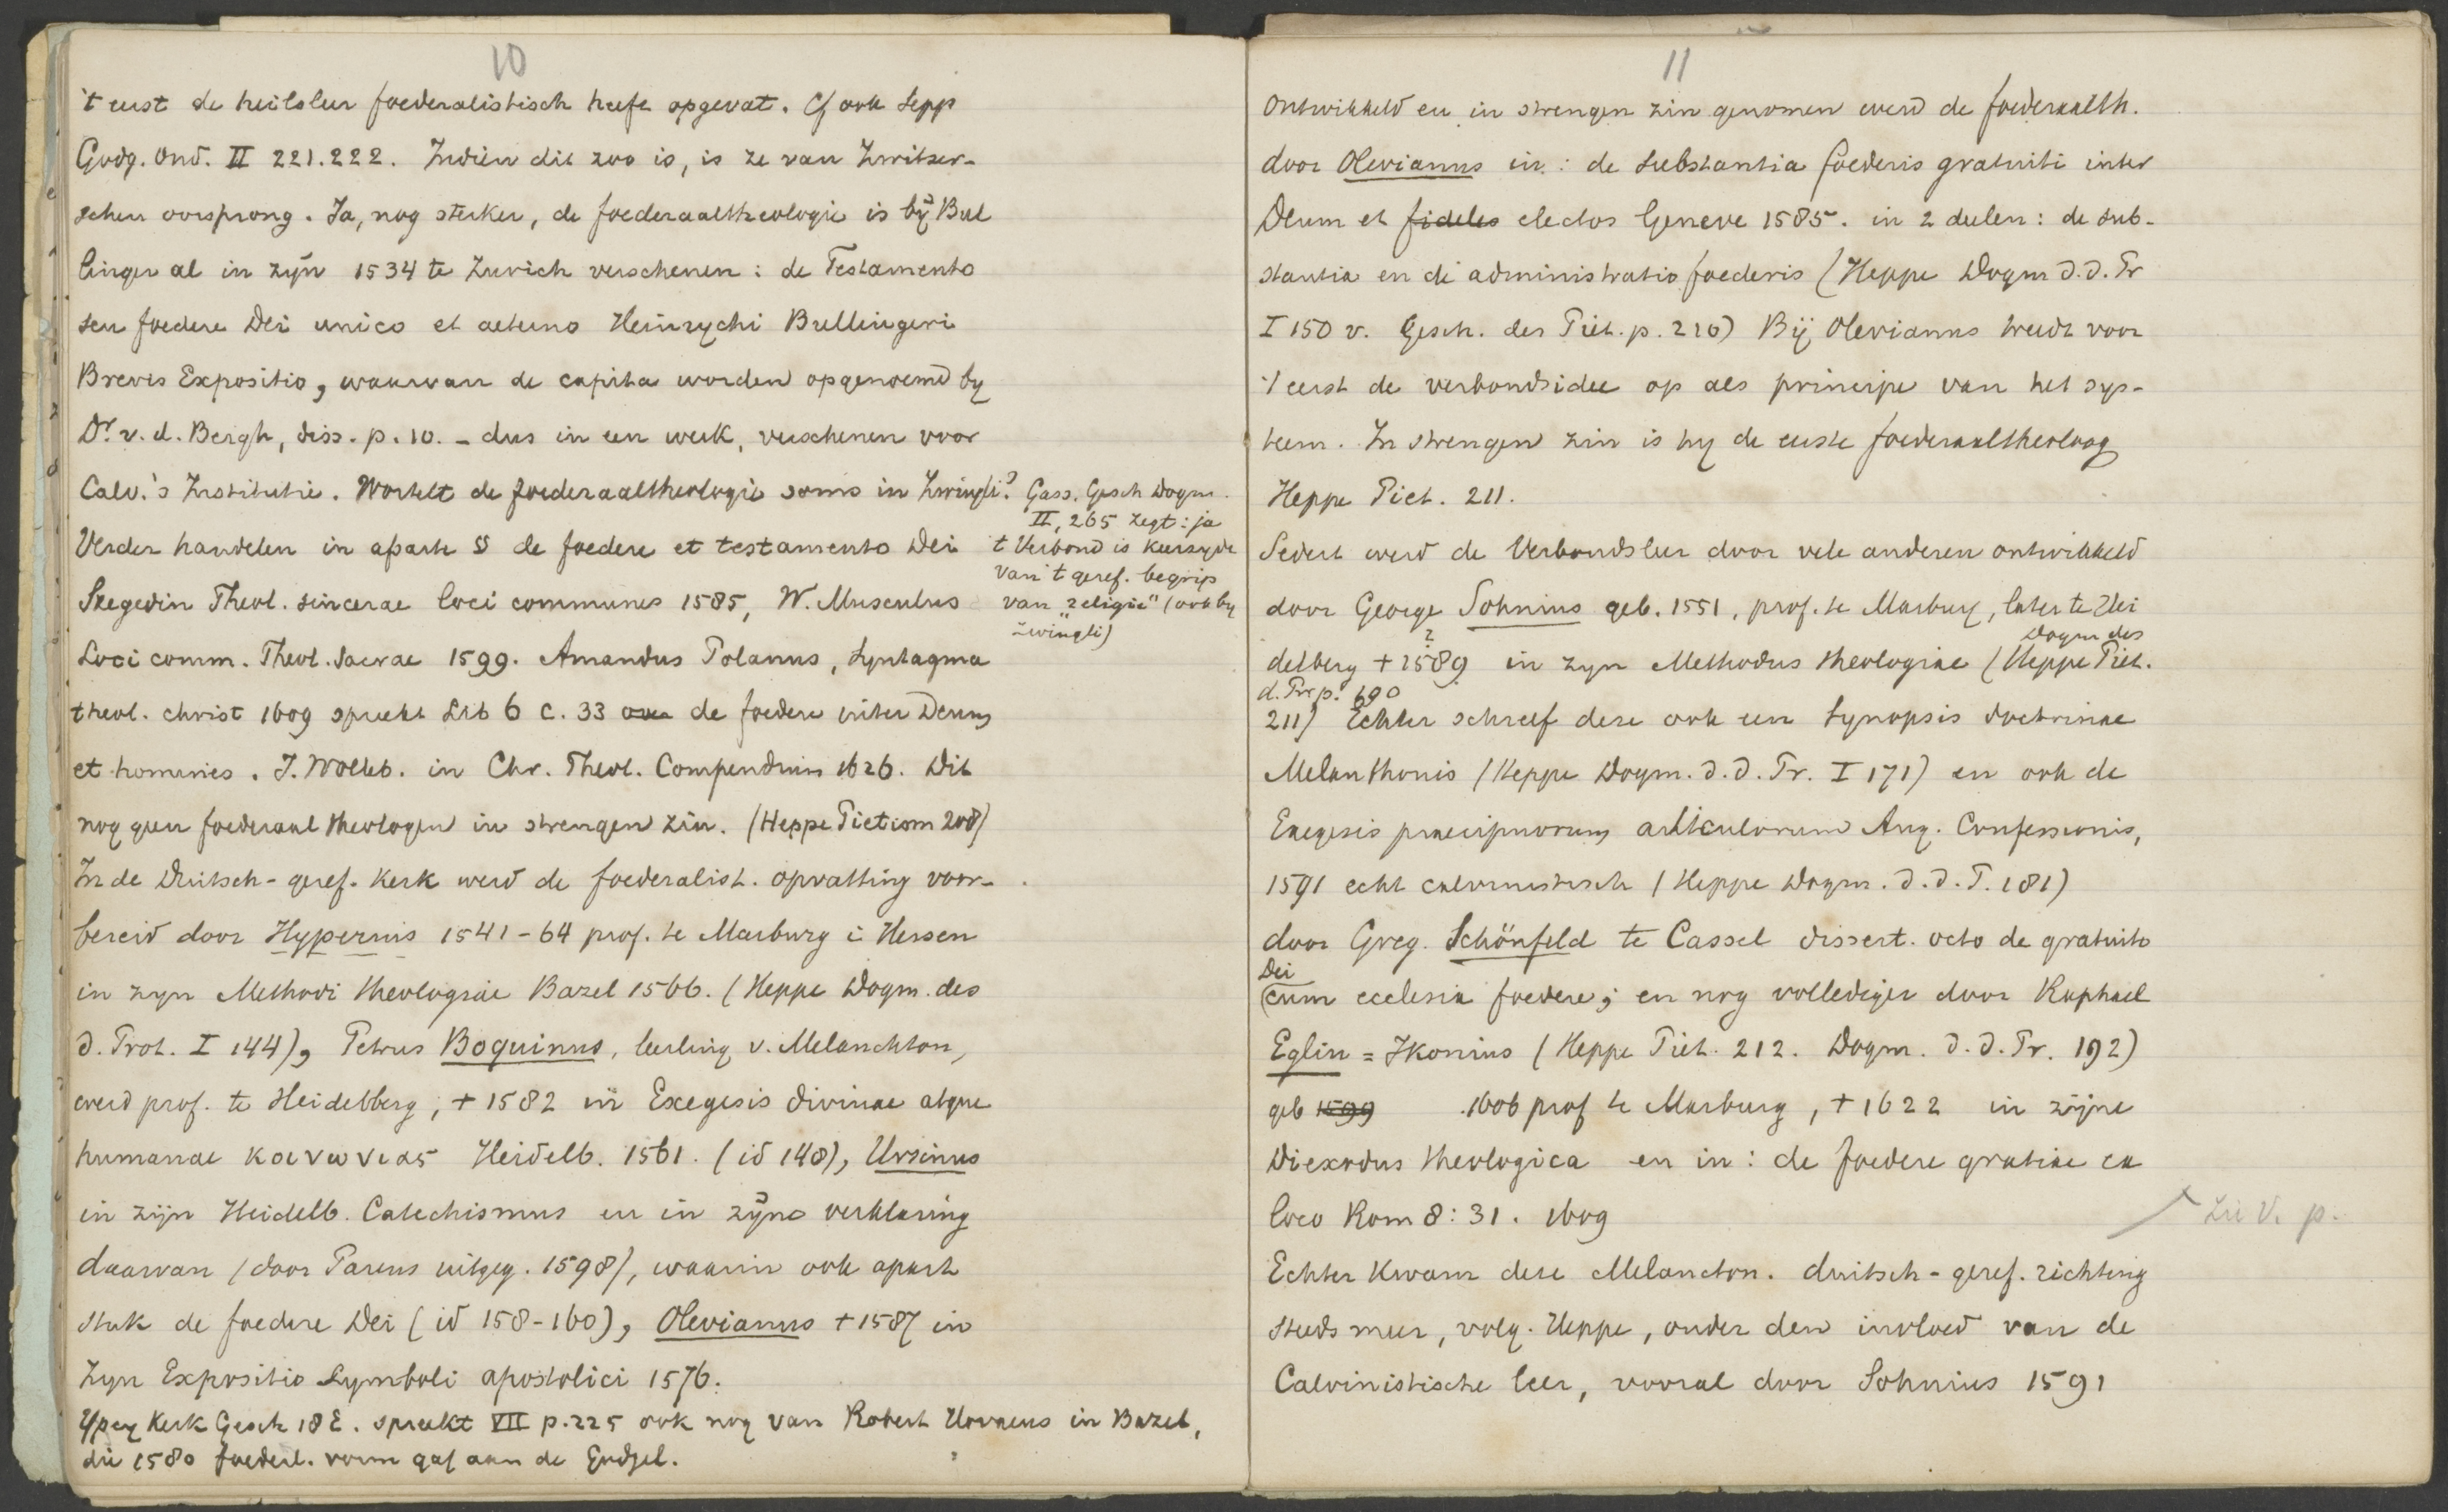 10
't eerst de heilsleer foederalistisch heeft opgevat. Cf ook Sepp
Godg. Ond. II 221.222. Indien dit zoo is, is ze van Zwitser-
schen oorsprong. Ja, nog sterker, de foederaaltheologie is bij Bul
linger al in zijn 1534 te Zurich verschenen: de Testamento
seu foedere Dei unico et aeterno Heinrychi Bullingeri
Brevis Expositio, waarvan de capita worden opgenoemd by
Dr. v. d. Bergh, diss. p. 10. - dus in een werk, verschenen voor
Calv.'s Institutie. Wortelt de foederaaltheologie soms in Zwingli?
Verder handelen in aparte § de foedere et testamento Dei
Szegedin Theol. sincerae loci communes 1585, W. Musculus
Loci comm. Theol. Sacrae 1599. Amandus Polanus, Syntagma
theol. christ 1609 spreekt Lib 6 c. 33 over de foedere inter Deum
et homines. J. Wolleb. in Chr. Theol. Compendium 1626. Dit
nog geen foederaal theologen in strengen zin. (Heppe Pietism 208)
In de Duitsch-geref. kerk werd de foederalist. opvatting voor-
bereid door Hyperius 1541-64 prof. te Marburg i. Hessen
in zyn Methodi theologiae Bazel 1566. (Heppe Dogm. des
d. Prot. I 144), Petrus Boquinus, leerling v. Melanchton,
werd prof. te Heidelberg, + 1582 in Exegesis divinae atque
humanae κοινωνιας Heidelb. 1561. (id 148), Ursinus
in zijn Heidelb. Catechismus en in zijne verklaring
daarvan (door Pareus uitgeg. 1598), waarin ook apart
stuk de foedere Dei (id 158-160), Olevianus + 1587 in
zyn Expositio Symboli apostolici 1576.
Ypey Kerk Gesch 18 E. spreekt VII p. 225 ook nog van Robert in Bazel,
die 1580 foederl. vorm gaf aan de Godgel.
Gass. Gesch Dogm.
II, 265 zegt: ja
't Verbond is keerzyde
van 't geref. begrip
van "religie" (ook by
Zwingli)
11
Ontwikkeld en in strengen zin genomen werd de foederaalth.
door Olevianus in: de Substantia foederis gratuiti inter
Deum et fideles electos Geneve 1585. in 2 deelen: de sub-
stantia en de administratio foederis (Heppe Dogm d. d. Pr
I 150 v. Gesch. des Piet. p. 210) Bij Olevianus treedt voor
't eerst de verbondsidee op als principe van het sys-
teem. In strengen zin is hy de eerste foederaaltheoloog
Heppe Piet. 211.
Sedert werd de Verbondsleer door vele anderen ontwikkeld
door George Sohnius geb. 1551, prof. te Marburg, later te Hei
delberg + 1589 ? in zyn Methodus theologiae (Heppe Piet.
Dogm des
d. Pr p. 690
211) Echter schreef deze ook een Synopsis doctrinae
Melanthonis (Heppe Dogm. d. d. Pr. I 171) en ook de
Exegesis praecipuorum articulorum Aug. Confessionis,
1591 echt calvinistisch (Heppe Dogm. d. d. P. 181)
door Greg. Schönfeld te Cassel dissert. octo de gratuito
Dei
cum ecclesia foedere; en nog vollediger door Raphael
Eglin = Ikonius (Heppe Piet. 212. Dogm. d. d. Pr. 192)
geb 1599 1606 prof te Marburg, + 1622 in zijne
Diexodus theologica en in: de foedere gratiae ex
loco Rom 8:31. 1609
zie V. p.
Echter kwam deze Melancton. duitsch-geref. richting
steeds meer, volg. Heppe, onder den invloed van de
Calvinistische leer, vooral door Sohnius 1591